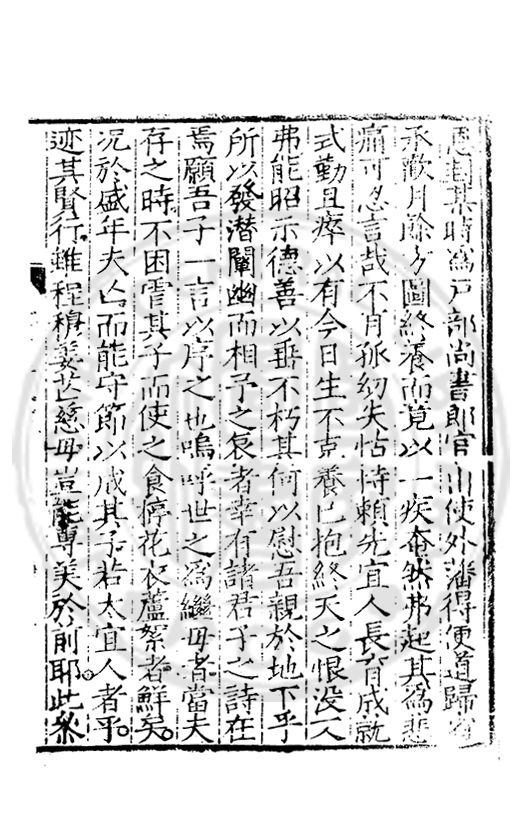 恩封某時爲戸部尚書郎官出使外藩得便道歸省
承歡月餘方圖終養而竟以一疾奄然弗起其爲悲
痛可忍言哉不肖孤幼失怙恃賴先宜人長育成就
式勤且瘁以有今日生不克養已抱終天之恨没又
弗能昭示德善以垂不朽其何以慰吾親於地下乎
所以發潜闡幽而相予之哀者幸有諸君子之詩在
焉願吾子一言以序之也嗚呼世之爲繼母者當夫
存之時不困雪其子而使之食桲花衣蘆絮者鮮矣
况於盛年夫亡而能守節以成其子若太宜人者乎
迹其賢行雖程穆姜芒慈母豈能專美於前耶此叅